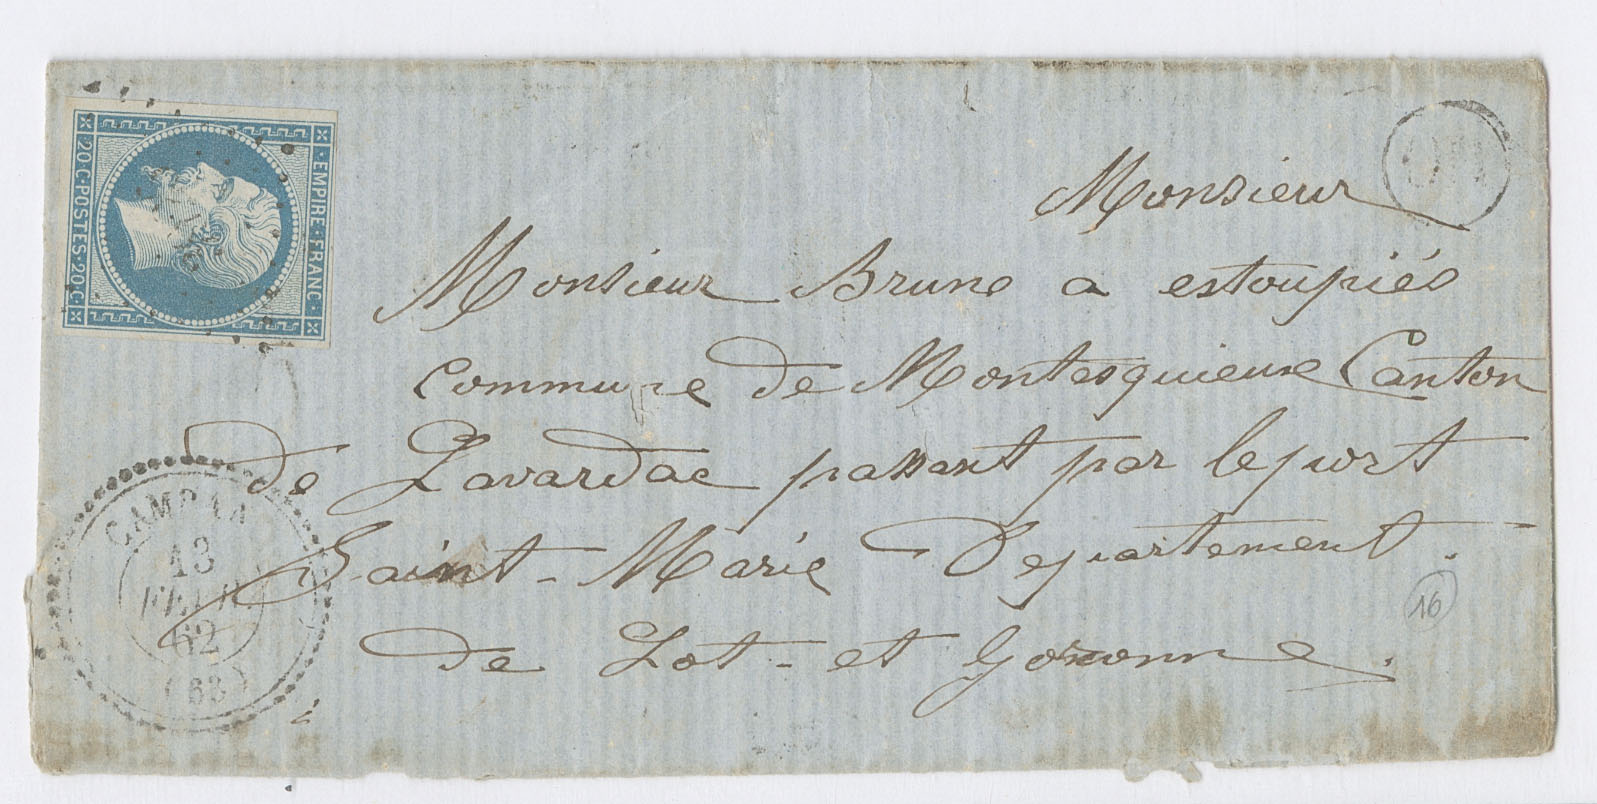 EMPIRE · FRANC
20 · C · POSTES · 20 · C
Monsieur
Monsieur Brune a estoupiés
commune de Montesquieure Canton
de Lavardac passant par le port
Saint-Marie Departement.
de Lot-et Goronne.
CAMPAN
13
62
(63)
16